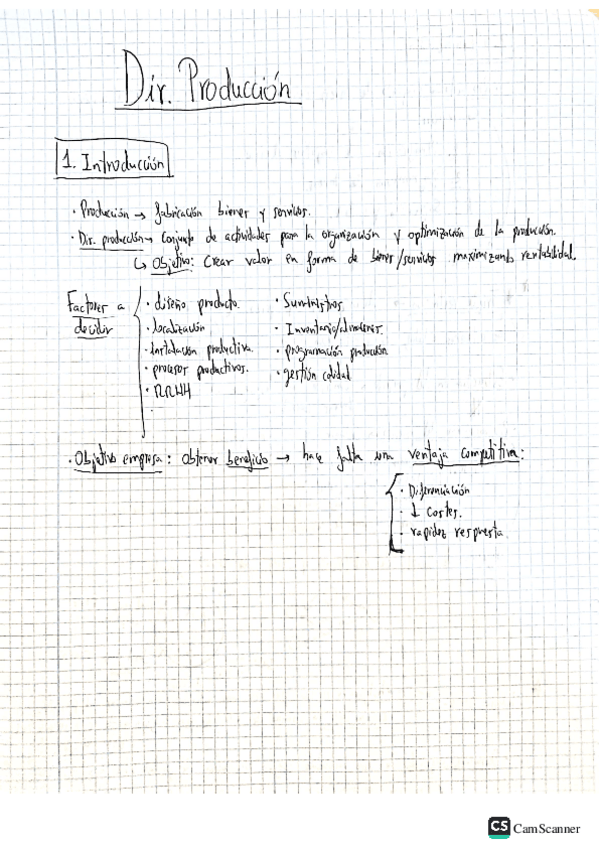 Dir. Producción
1. Introducción
· Producción → fabricación bienes y servicios.
· Dir. producción → Conjunto de actividades para la organización y optimización de la producción.
↳ Objetivo: Crear valor en forma de bienes/servicios maximizando rentabilidad.
Factores a decidir
· diseño producto.
· localización
· instalación productiva.
· procesos productivos.
· RRHH
· Suministros
· Inventario/almacenes.
· programación producción
· gestión calidad
· Objetivo empresa: obtener beneficio → hace falta una ventaja competitiva:
· Diferenciación
· ↓ Costes.
· rapidez respuesta.
CS CamScanner